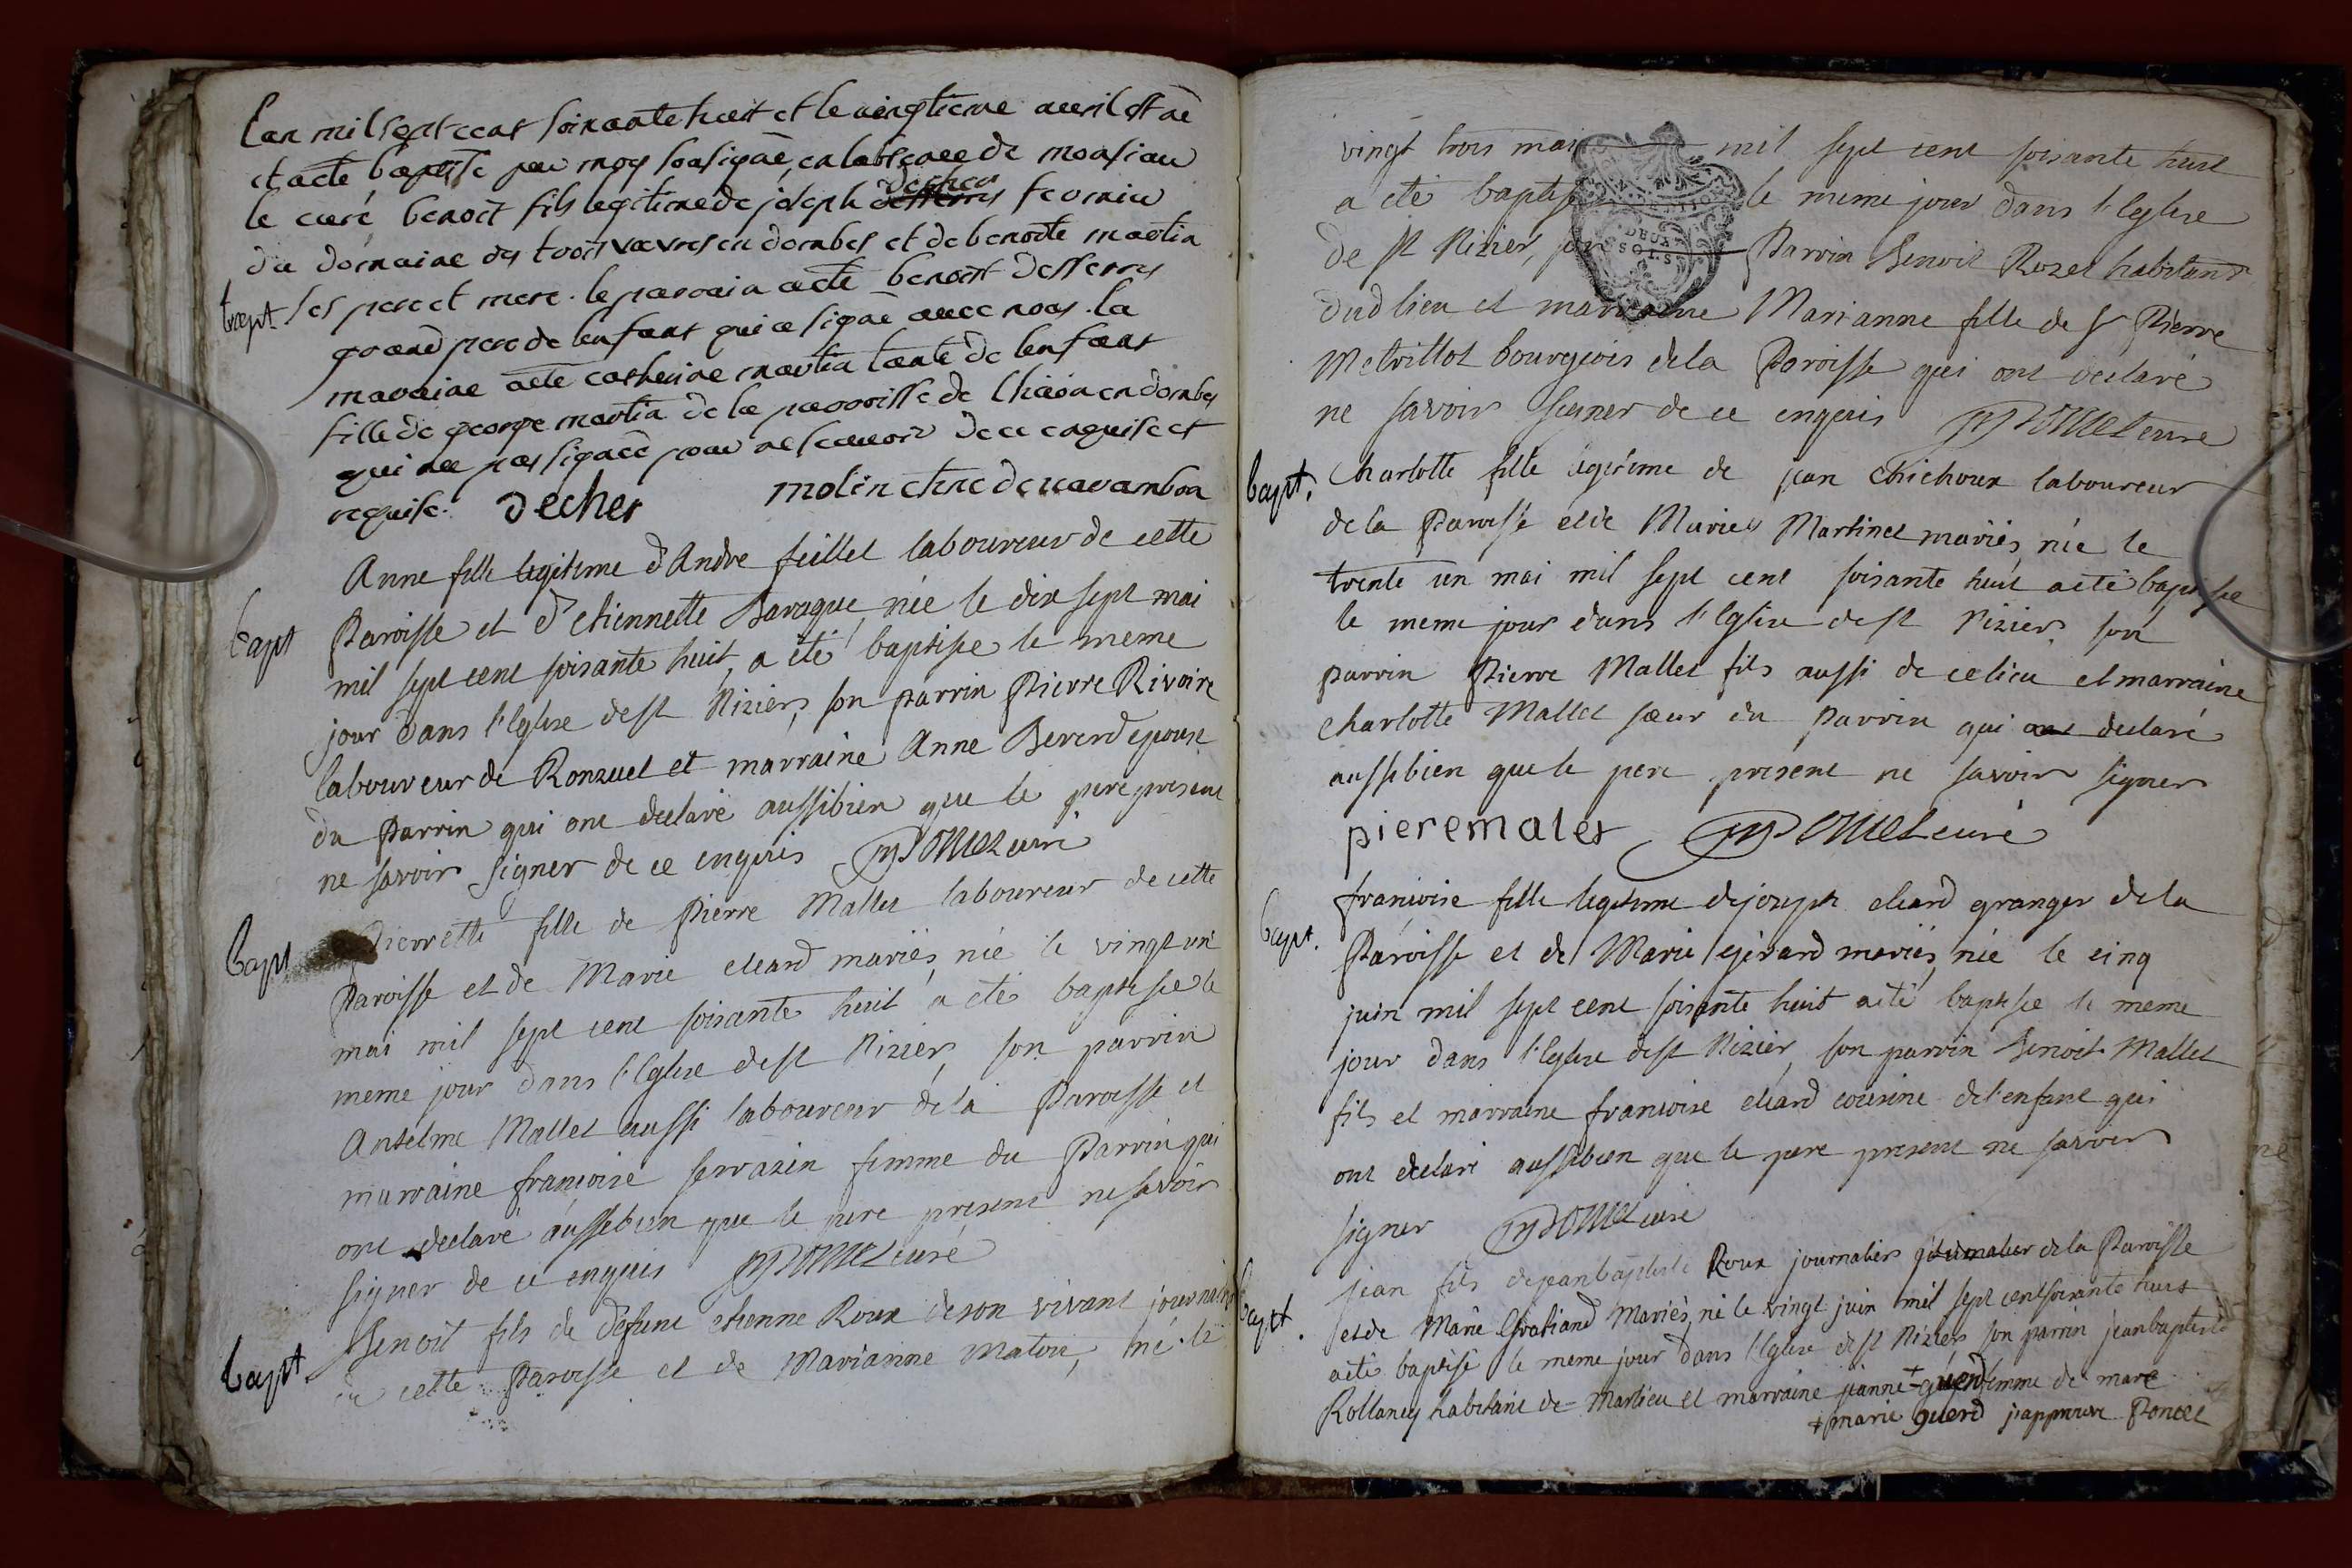 Lan mil sept cent soixante huit et le vingtieme avril est né
et a eté baptisé par moy sousigné, en labsence de monsieur
le curé benoit fils legitime de joseph decher fermier
du domaine des trois vavres en dombes et de benoite martin
bapt ses pere et mere. le parain a eté benoit desserres
grand pere de lenfant qui a signé avec nous. la
maraine a eté catherine martin tante de lenfant
fille de george martin de la parroisse de en dombes
qui na pas signé pour ne scavoir de ce enquise et
requise. decher molin de
Anne fille legitime d'Andre feillet laboureur de cette
bapt Paroisse et d'etiennette Baraque, née le dix sept mai
mil sept cent soixante huit, a eté baptisée le meme
jour dans l'Eglise de st Nizier, son parrin Pierre Rivoire
laboureur de Ronzuel et marraine Anne Beverd epouse
du Parrin qui ont declaré aussi bien que le pere present
ne savoir signer de ce enquis Poncet curé
bapt Pierrette fille de Pierre Mallet laboureur de cette
Paroisse et de Marie cleard mariés, née le vingt un
mai mil sept cent soixante huit a eté baptisée le
meme jour dans l'Eglise de st Nizier, son parrin
Anselme Mallet aussi laboureur de la Paroisse et
marraine françoise serrazin femme du Parrin qui
ont declaré aussi bien que le pere present ne savoir
signer de ce enquis Poncet curé
Benoit fils de defunt etienne Roux de son vivant journalier
bapt de cette Paroisse et de Marianne Maton, né le
vingt trois mai mil sept cent soixante huit
a eté baptisé le meme jour dans l'Eglise
de st Nizier, son Parrin Benoit Rozet habitant
dud lieu et marraine Marianne fille de sr Pierre
Metrillot bourgeois de la Paroisse qui ont declaré
ne savoir signer de ce enquis Poncet curé
bapt. Charlotte fille legitime de jean Chichoux laboureur
de la Paroisse et de Marie Martinet mariés, née le
trente un mai mil sept cent soixante huit a eté baptisée
le meme jour dans l'Eglise de st Nizier, son
parrin Pierre Mallet fils aussi de ce lieu et marraine
charlotte Mallet sœur du Parrin qui ont declaré
aussi bien que le pere present ne savoir signer
pieremalet Poncet curé
françoise fille legitime de joseph cleard granger de la
bapt. Paroisse et de Marie gérard mariés, née le cinq
juin mil sept cent soixante huit a eté baptisée le meme
jour dans l'Eglise de st Nizier, son parrin Benoit Mallet
fils et marraine françoise cleard cousine de l'enfant qui
ont declaré aussi bien que le pere present ne savoir
signer Poncet curé
jean fils de jean baptiste Roux journalier journalier de la Paroisse
bapt. et de Marie Gratiand Mariés, né le vingt juin mil sept cent soixante huit
a eté baptisé le meme jour dans l'Eglise de st Nizier son parrin jean baptiste
Rollancy habitant de Marlieu et marraine jeanne + guerd femme de marc
+ marie guerd j'approuve Poncet
DEUX
SOLS